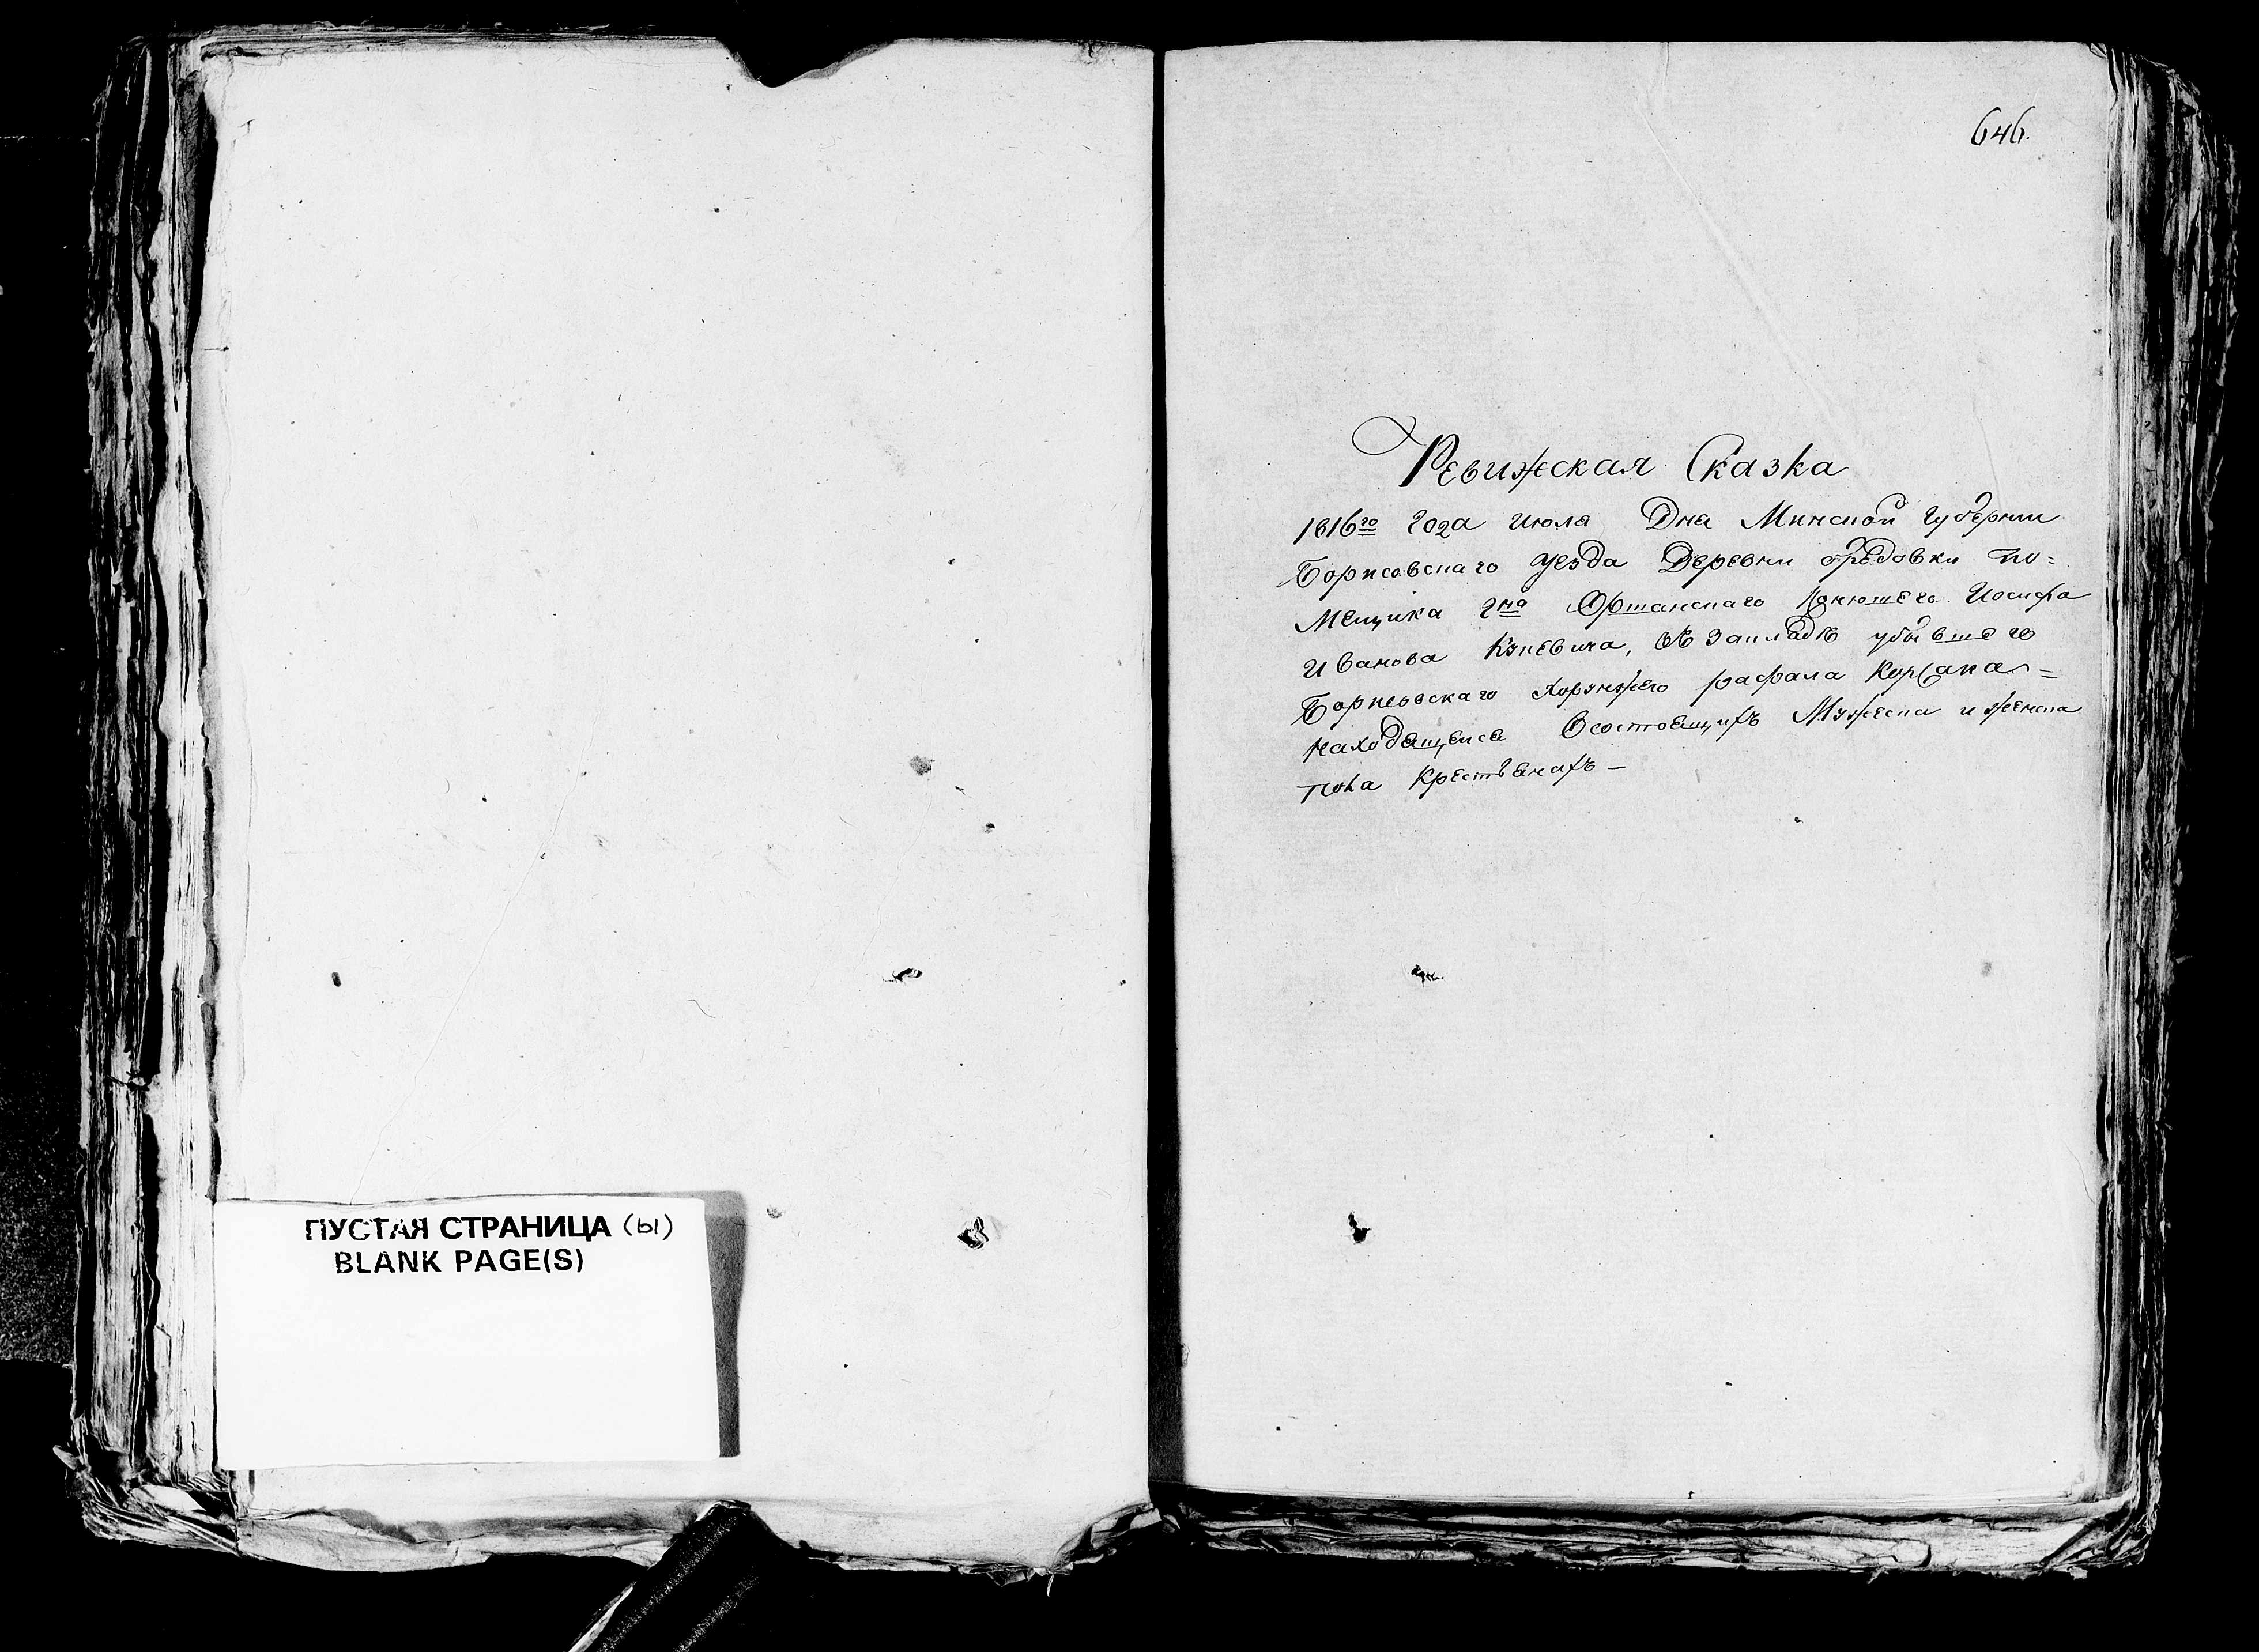 646.
Ревижская Сказка
1816го года июля Дна Минской губернии
Борисовскаго уезда Деревни по=
мещика гна Оршанскаго Конюшего Иосифа
Иванова Куцевича, в закладе убывшего
Борисовскаго Хорунжего рафала Корсака=
находящейся Всостоящих Мужеска и женска
пола Крестьянах—
ПУСТАЯ СТРАНИЦА (ы)
BLANK PAGE(S)